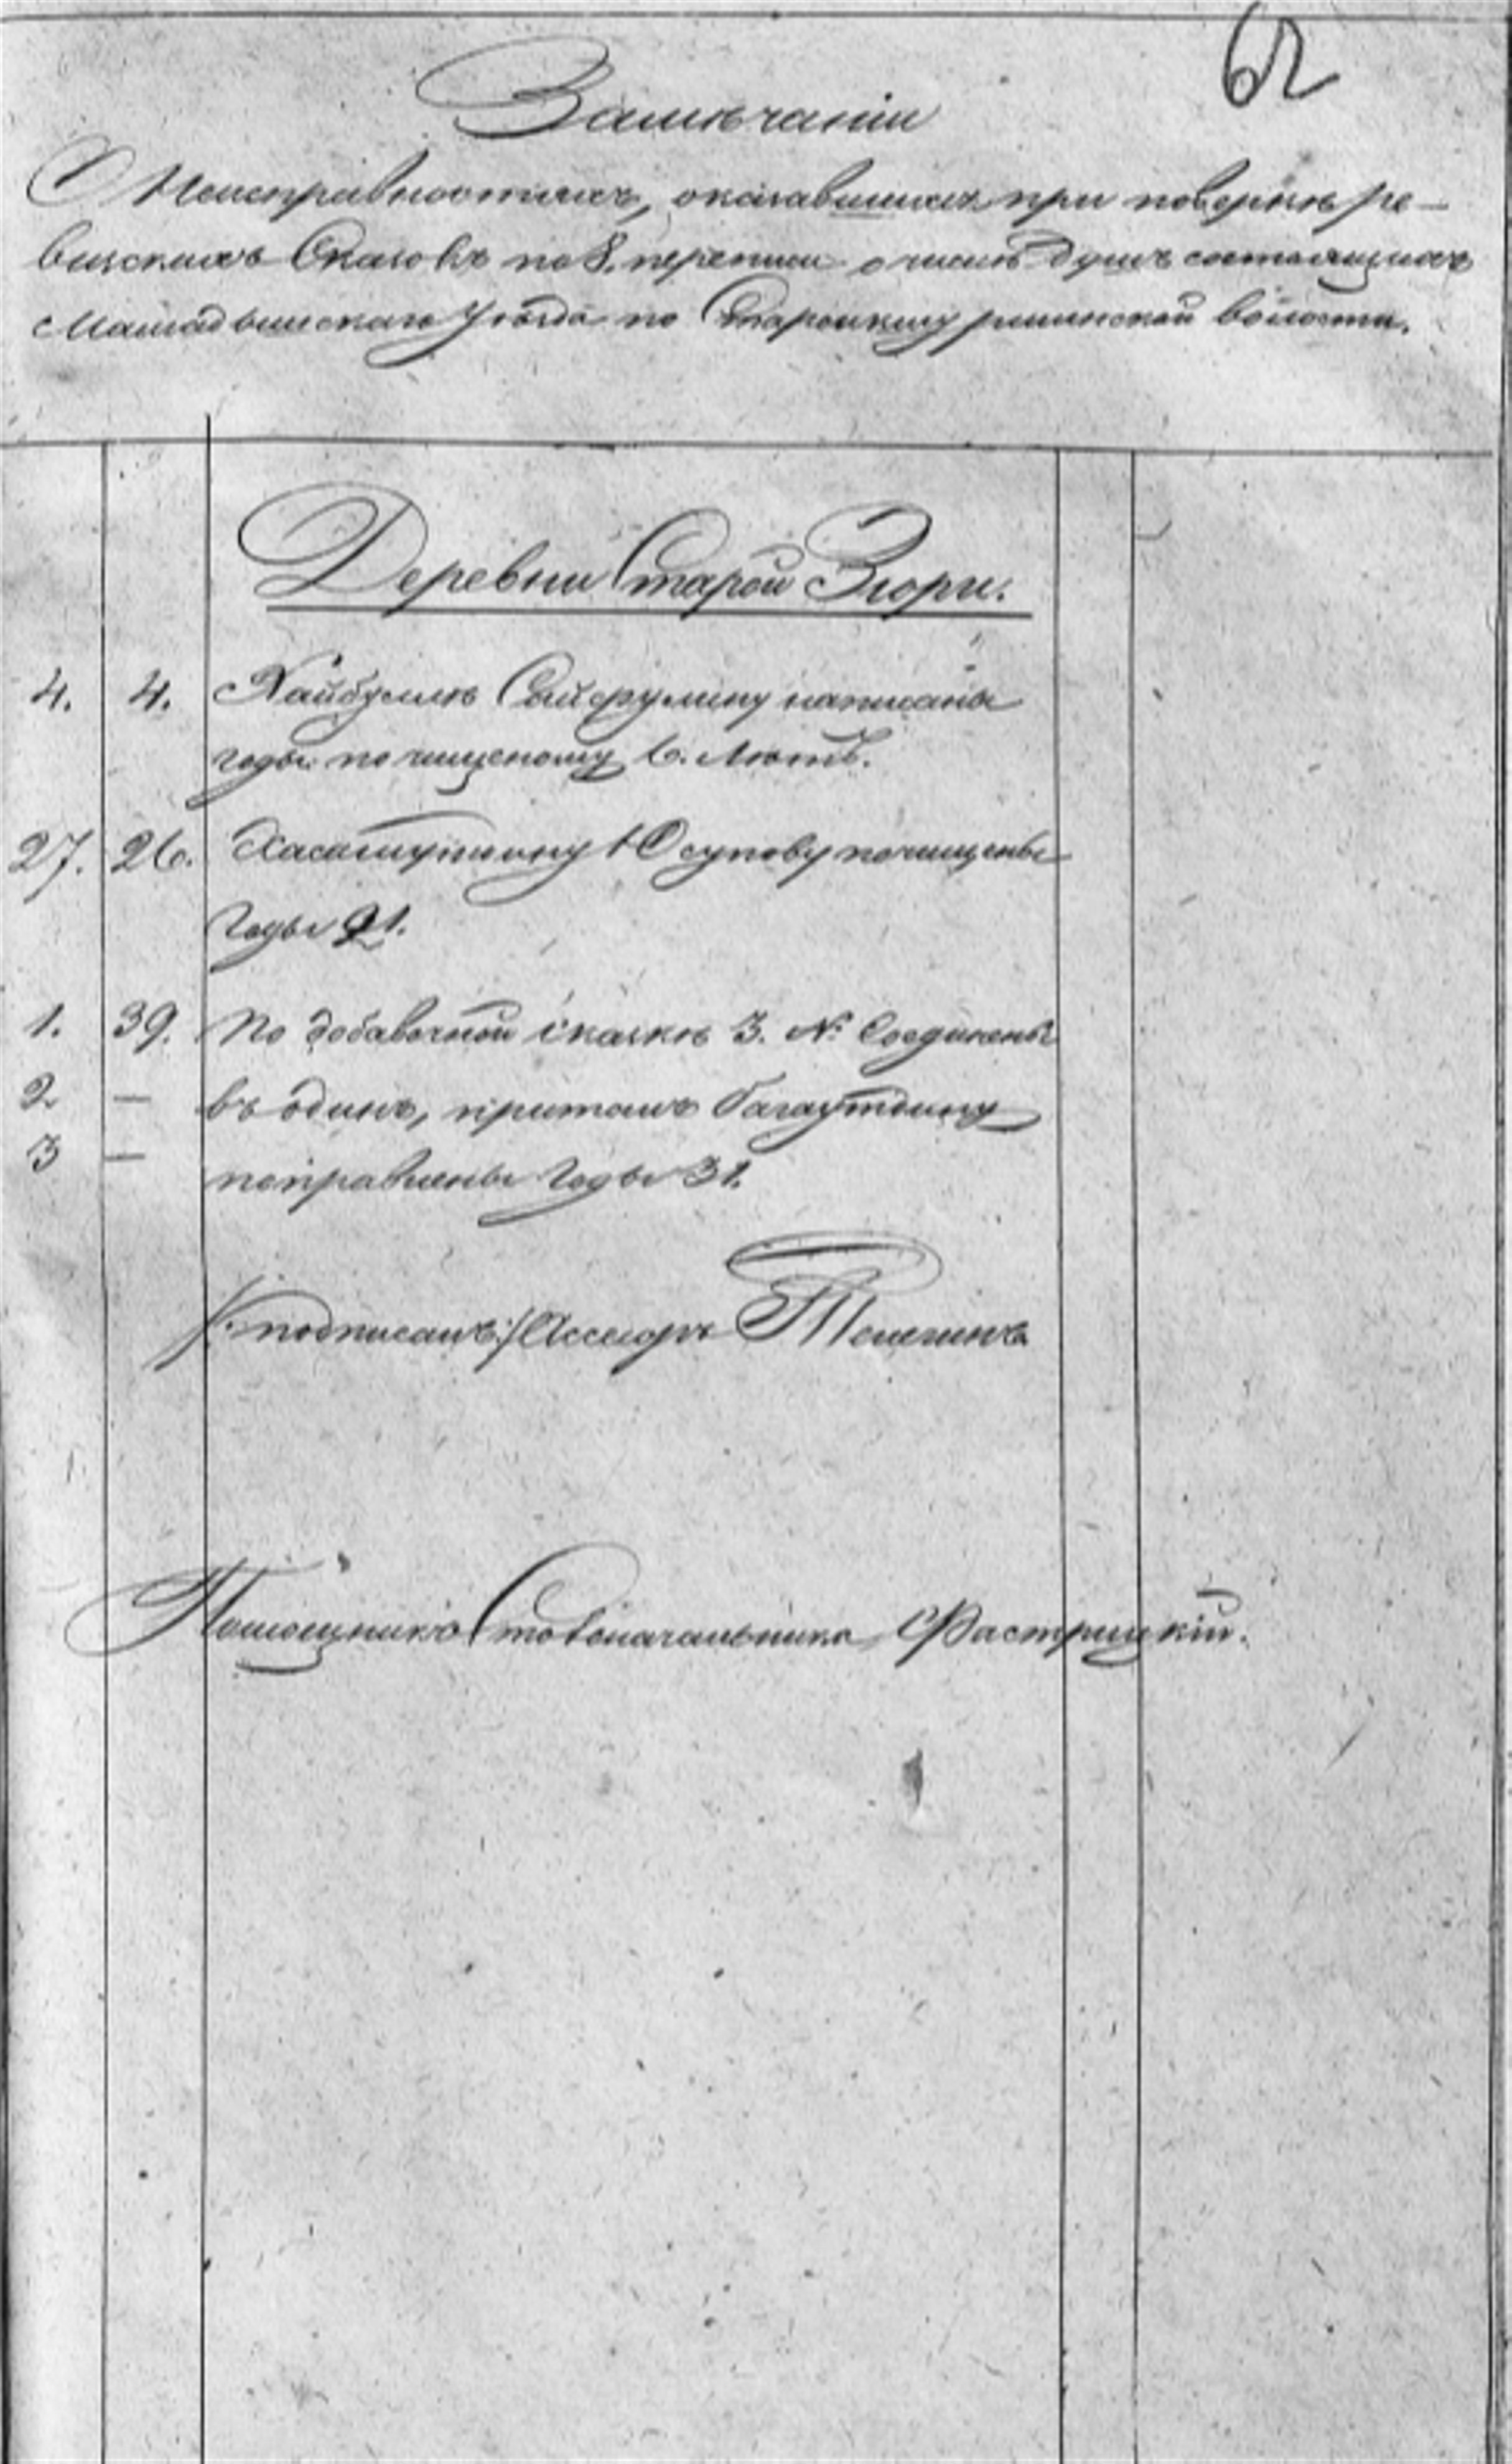 62
Замѣчаніи
О Неисправностяхъ, оказавшихся при повѣркѣ ре-
визскихъ Сказокъ по 8. переписи о числѣ душъ состоящихъ
Мамадышскаго Уѣзда по волости.
Деревни Старой Зюри.
4. 4. Хайбуллѣ Сайфулину написаны
годы по чищеному 6. Лѣтъ.
27. 26. Юсупову почищены
годы 21.
1. 39. По добавочной скаскѣ 3. № Соединены
2 — въ одинъ, притомъ Багаутдину
3 — поправлены годы 31.
/:подписалъ:/ Ассесоръ
Помощникъ Столоначальника